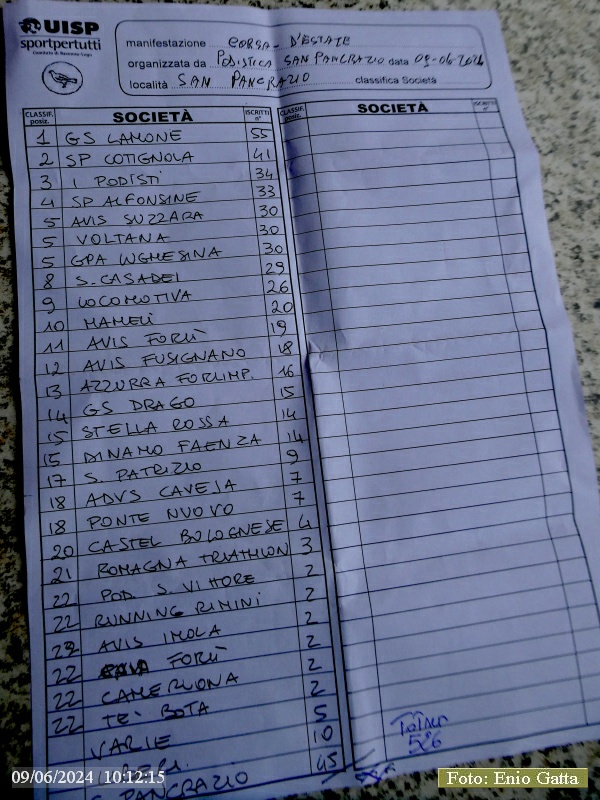 UISP
sportpertutti
manifestazione CORSA D'ESTATE
organizzata da PODISTICA SAN PANCRAZIO data 09-06-2024
località SAN PANCRAZIO classifica Società
CLASSIF. posiz. SOCIETÀ ISCRITTI n° CLASSIF. posiz. SOCIETÀ ISCRITTI n°
1 GS LAMONE 55
2 SP COTIGNOLA 41
3 I PODISTI 34
4 SP ALFONSINE 33
5 AVIS SUZZARA 30
5 VOLTANA 30
5 GPA LUGHESINA 30
8 S. CASADEI 29
9 LOCOMOTIVA 26
10 MAMELI 20
11 AVIS FORLÌ 19
12 AVIS FUSIGNANO 18
13 AZZURRA FORLIMP. 16
14 GS DRAGO 15
15 STELLA ROSSA 14
15 DINAMO FAENZA 14
17 S. PATRIZIO 9
18 ADVS CAVEJA 7
18 PONTE NUOVO 7
20 CASTEL BOLOGNESE 4
21 ROMAGNA TRIATHLON 3
22 POD. S. VITTORE 2
22 RUNNING RIMINI 2
22 AVIS IMOLA 2
22 FORLÌ 2
22 CAMERLONA 2
22 TE' BOTA 2
VARIE 5
10
S. PANCRAZIO 45
TOTALE
526
09/06/2024 10:12:15
Foto: Enio Gatta